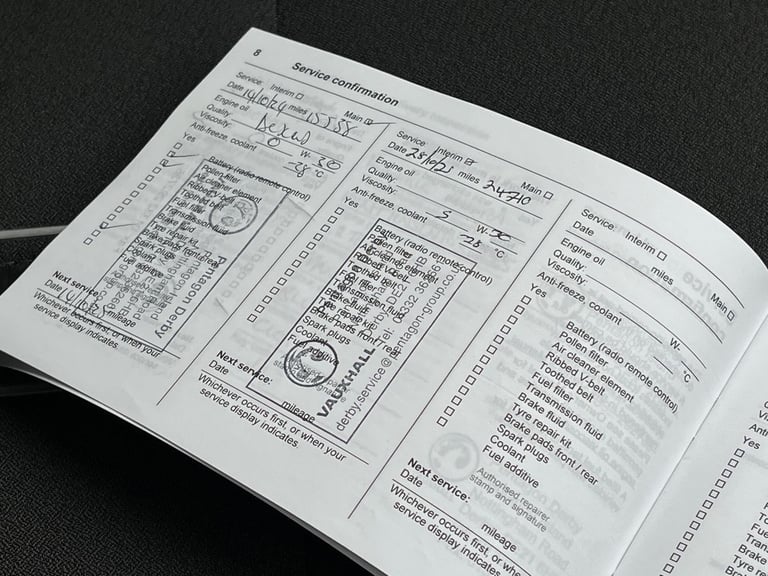 8
Service confirmation
Service: Interim Main
Date 14/10/24 miles 15538
Engine oil
Quality:
Viscosity: W- 30
Anti-freeze, coolant -28 °C
Yes
Battery (radio remote control)
Pollen filter
Air cleaner element
Ribbed V-belt
Toothed belt
Fuel filter
Transmission fluid
Brake fluid
Tyre repair kit
Brake pads front / rear
Spark plugs
Coolant
Fuel additive
Pentagon Derby
Next service:
Date mileage
Whichever occurs first, or when your
service display indicates.
Service: Interim Main
Date 28/10/25 miles
Engine oil
Quality:
Viscosity: 5 W- 30
Anti-freeze, coolant -25 °C
Yes
Battery (radio remote control)
Pollen filter
Air cleaner element
Ribbed V-belt
Toothed belt
Fuel filter
Transmission fluid
Brake fluid
Tyre repair kit
Brake pads front / rear
Spark plugs
Coolant
Fuel additive
VAUXHALL
derby.service@pentagon-group.co
Next service:
Date mileage
Whichever occurs first, or when your
service display indicates.
Service: Interim Main
Date miles
Engine oil
Quality:
Viscosity: W-
Anti-freeze, coolant °C
Yes
Battery (radio remote control)
Pollen filter
Air cleaner element
Ribbed V-belt
Toothed belt
Fuel filter
Transmission fluid
Brake fluid
Tyre repair kit
Brake pads front / rear
Spark plugs
Coolant
Fuel additive
Authorised repairer
stamp and signature
Next service:
Date mileage
Whichever occurs first, or when
service display indicates.